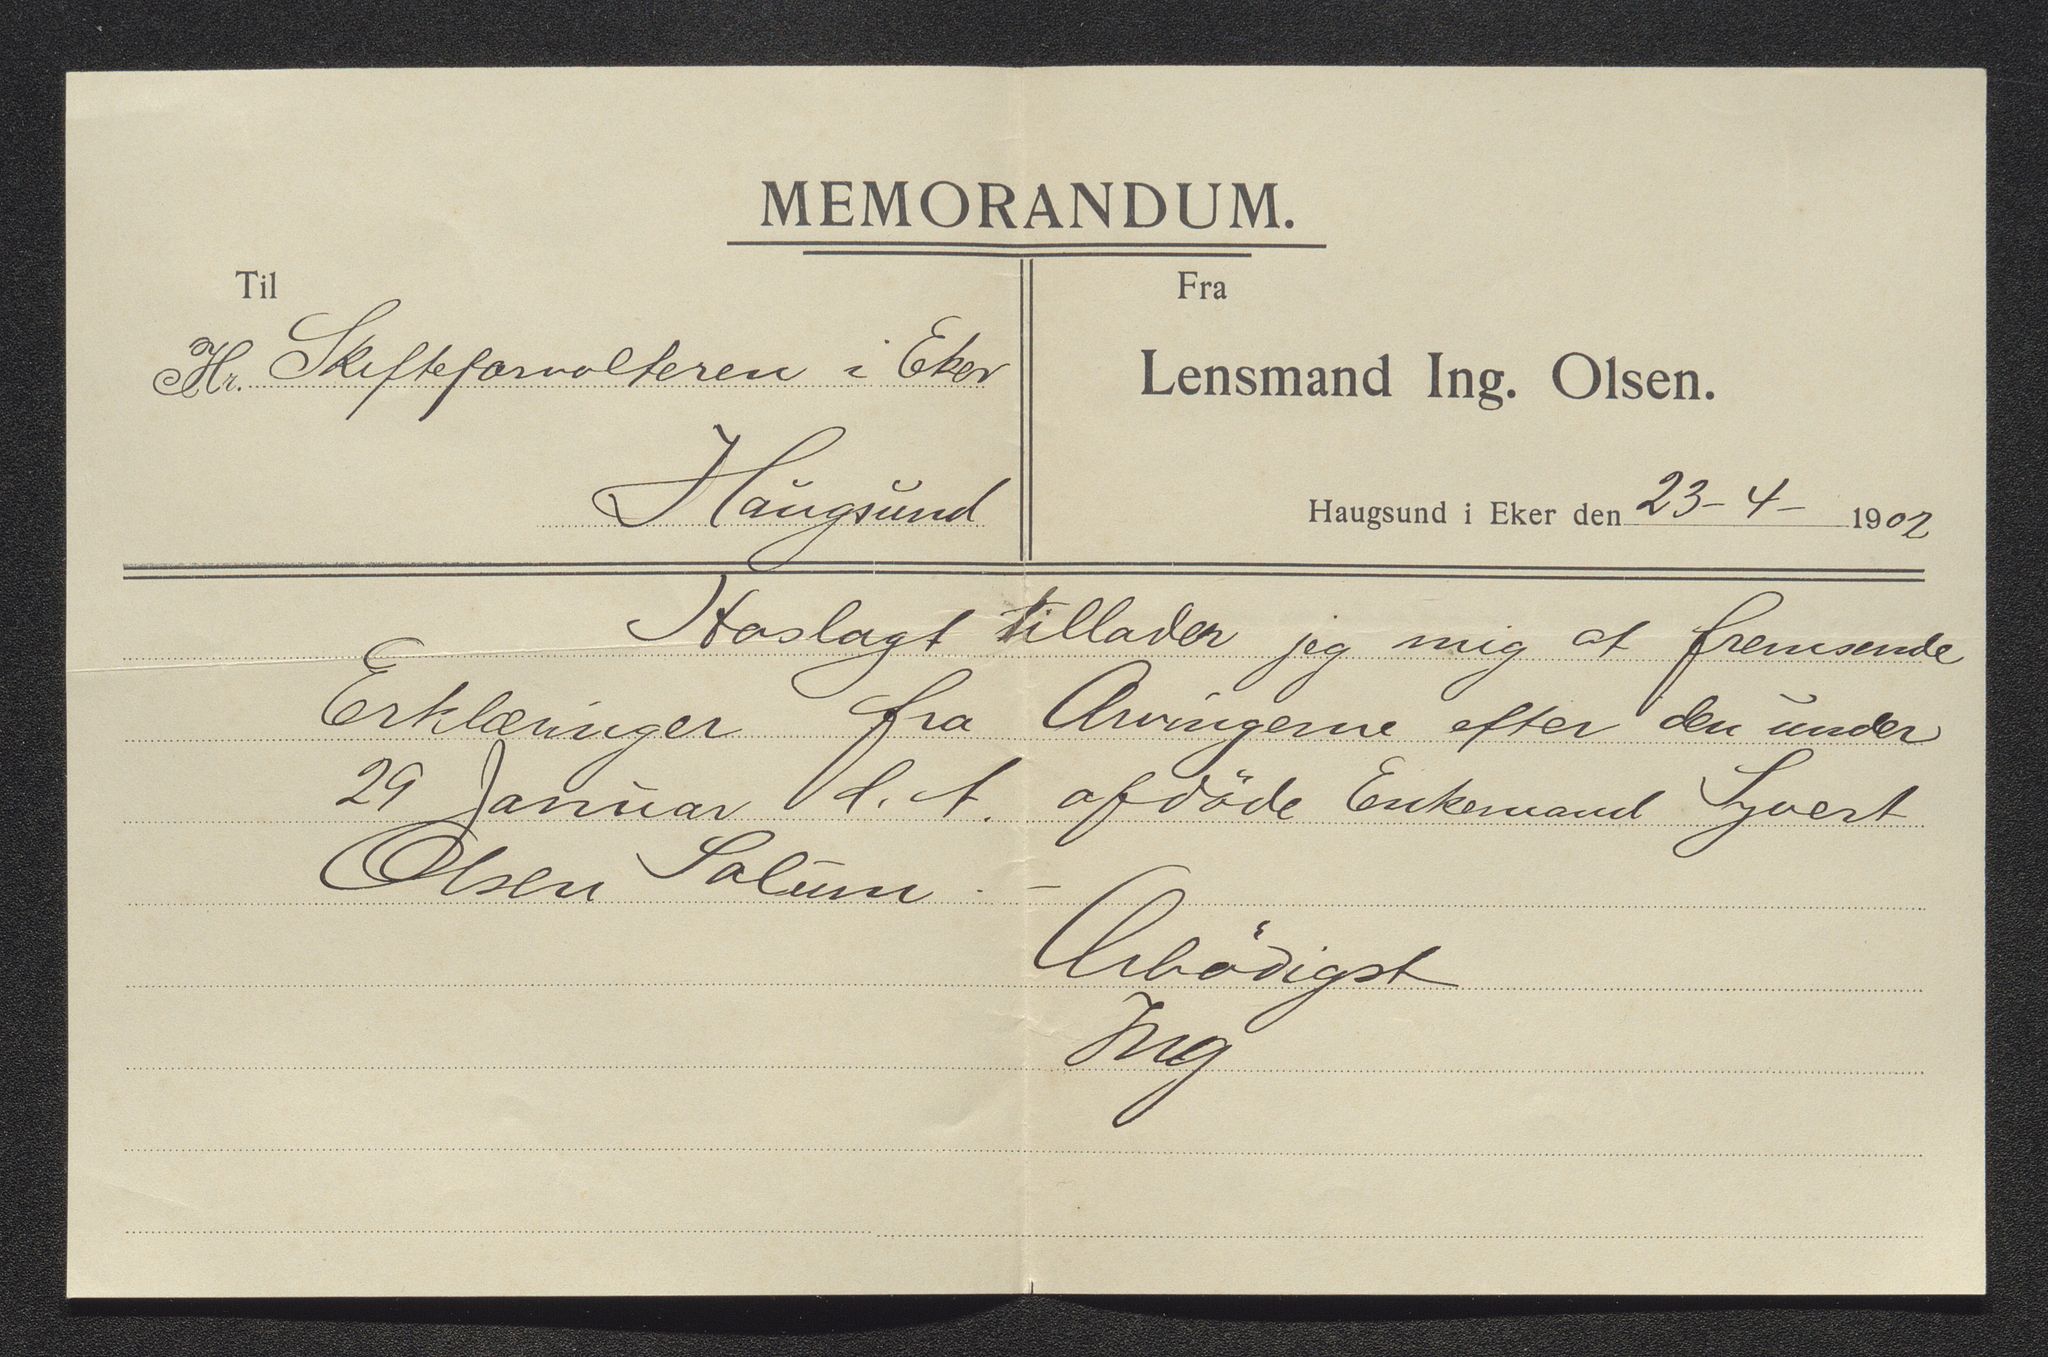 MEMORANDUM.
Til
Hr. Skifteforvalteren i Eker
Haugsund
Fra
Lensmand Ing. Olsen.
Haugsund i Eker den 23-4- 1902
Hoslagt tillader jeg mig at fremsende
Erklæringer fra Arvingerne efter den under
29 Januar d. A. afdöde Enkemand Syvert
Olsen Solum. –
Ærbödigst
Ing